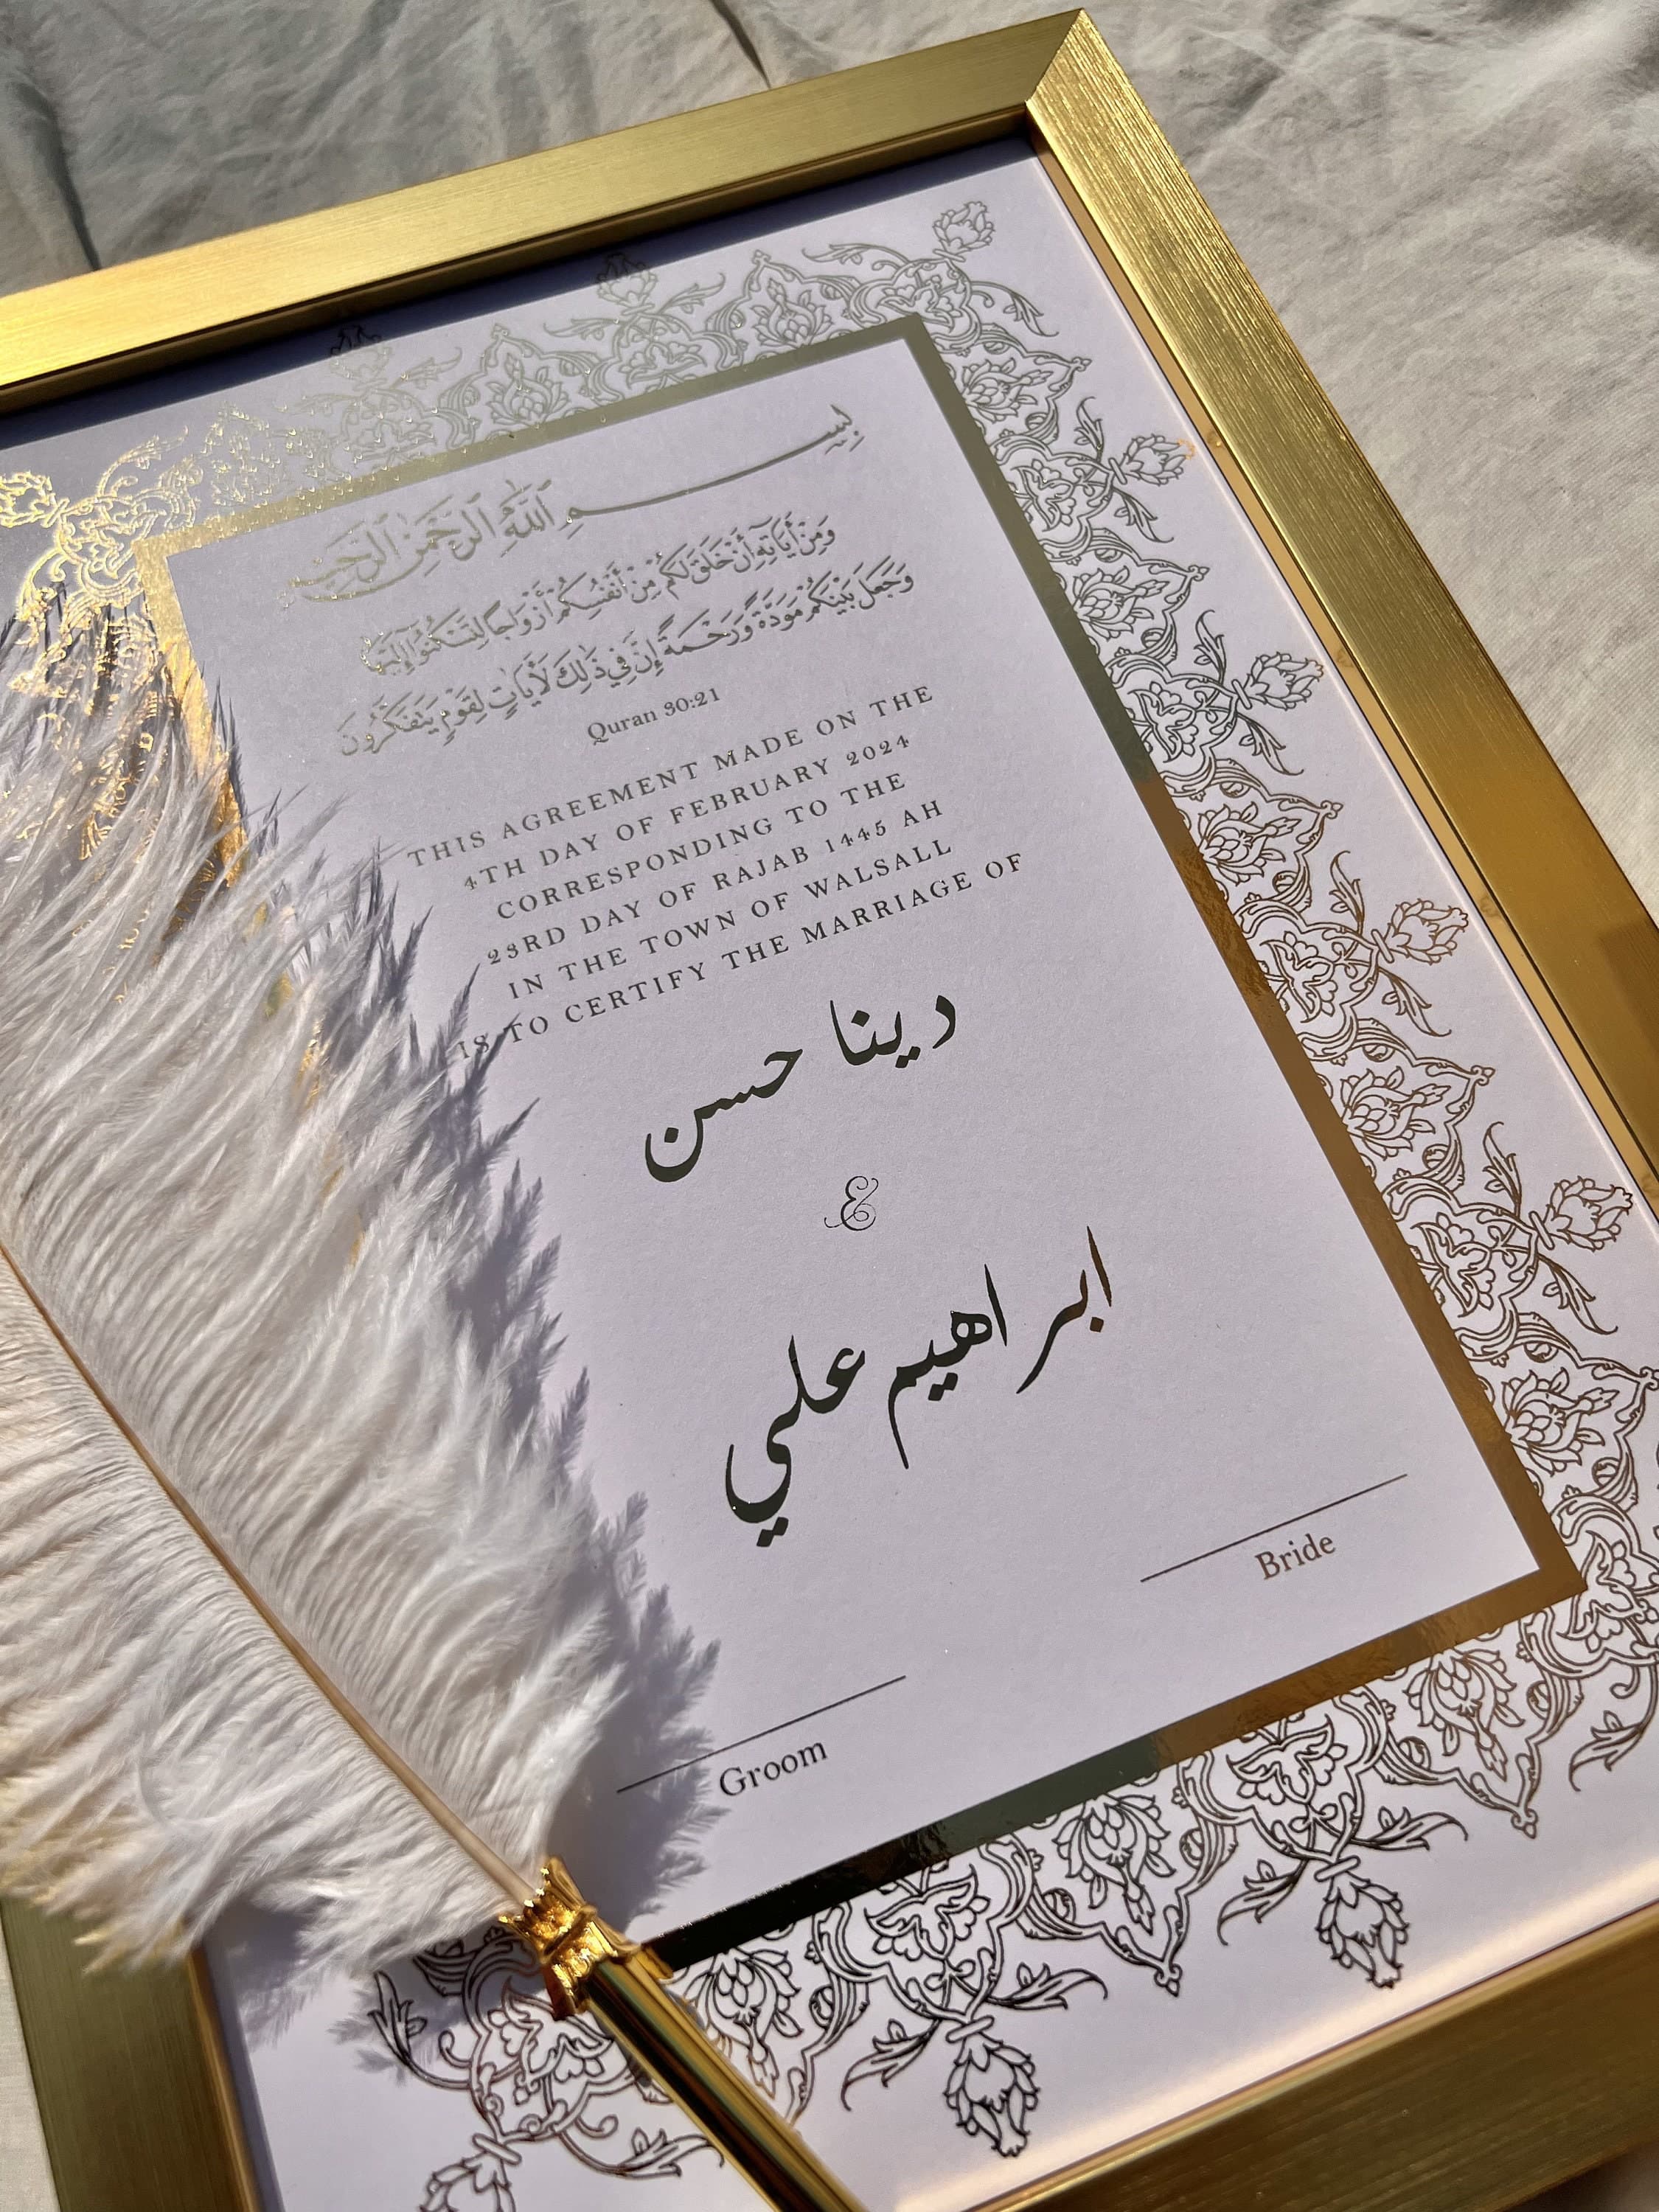 بِسْمِ اللَّهِ الرَّحْمَٰنِ الرَّحِيمِ
وَمِنْ أَيَاتِهِ أَنْ خَلَقَ لَكُم مِّنْ أَنْفُسِكُمْ أَزْوَاجًا لِتَسْكُنُوا إِلَيْهَا
وَجَعَلَ بَيْنَكُمْ مَوَدَّةً وَرَحْمَةً إِنَّ فِي ذَٰلِكَ لَأَيَاتٍ لِقَوْمٍ يَتَفَكَّرُونَ
Quran 30:21
THIS AGREEMENT MADE ON THE
4TH DAY OF FEBRUARY 2024
CORRESPONDING TO THE
23RD DAY OF RAJAB 1445 AH
IN THE TOWN OF WALSALL
IS TO CERTIFY THE MARRIAGE OF
دينا حسن
&
ابراهيم علي
Bride
Groom